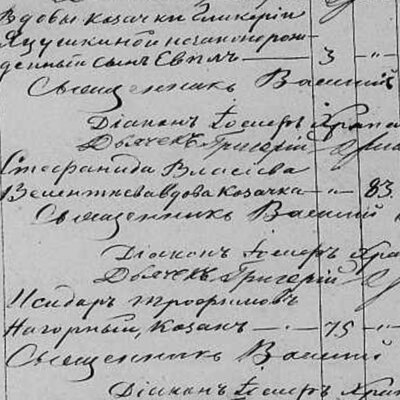 Вдовы козачки Гликеріи
Яцушкиной незаконорож-
денный сынъ Евплъ — 3 — "—
Священникъ Василій
Діаконъ Іосифъ Храп
Дьячекъ Григорій
Стефанида Власіева
вдова козачка — " — 83.
Священникъ Василій
Діаконъ Іосифъ Хра
Дьячекъ Григорій
Исидоръ Трофимовъ
Нагорный, козакъ — " — 75 — " —
Священникъ Василій
Діаконъ Іосифъ Храп